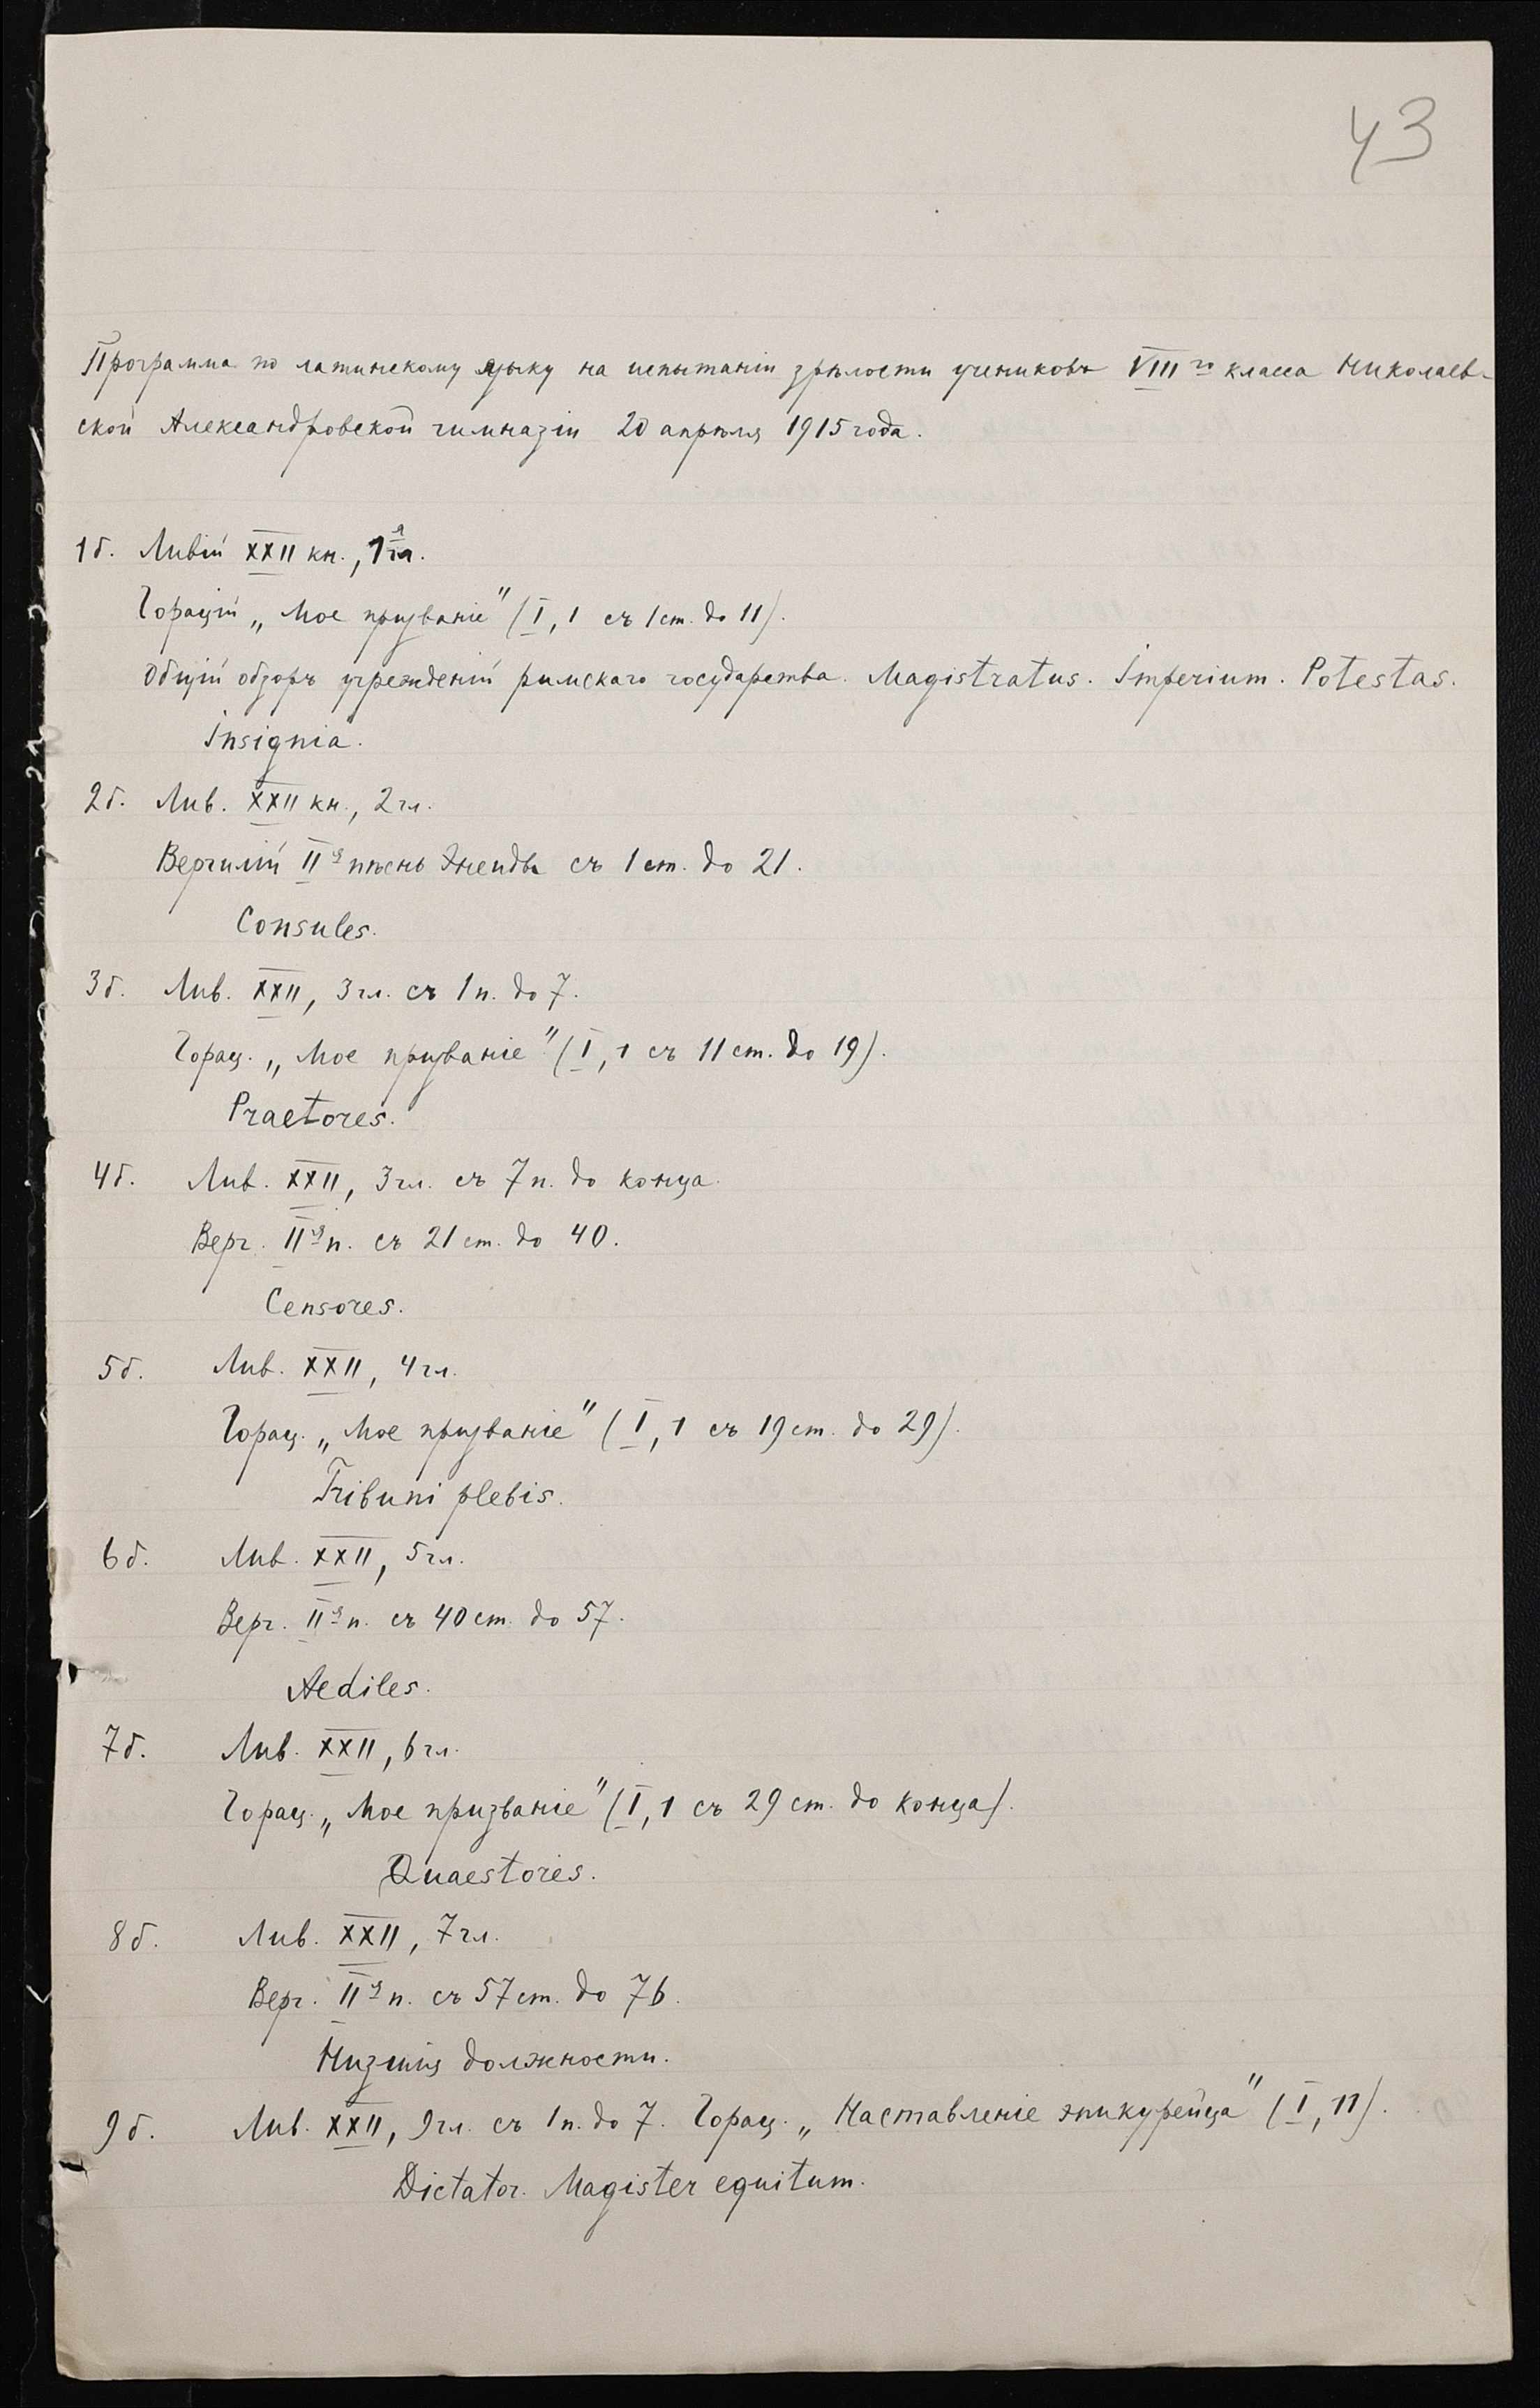 43
Программа по латинскому языку на испытаніи зрѣлости учениковъ VIII го класса Николаев-
ской Александровской гимназіи 20 апрѣля 1915 года.
1 б. Ливій XXII кн., 1я гл.
Горацій „Мое призваніе" (I, 1 съ 1 ст. до 11).
Общій обзоръ учрежденій римскаго государства. Magistratus. Imperium. Potestas.
Insignia.
2 б. Лив. XXII кн., 2 гл.
Вергилій II я пѣснь Энеиды съ 1 ст. до 21.
Consules.
3 б. Лив. XXII, 3 гл. съ 1 п. до 7.
Горац. „Мое призваніе" (I, 1 съ 11 ст. до 19).
Praetores.
4 б. Лив. XXII, 3 гл. съ 7 п. до конца.
Верг. II я п. съ 21 ст. до 40.
Censores.
5 б. Лив. XXII, 4 гл.
Горац. „Мое призваніе" (I, 1 съ 19 ст. до 29).
Tribuni plebis.
6 б. Лив. XXII, 5 гл.
Верг. II я п. съ 40 ст. до 57.
Aediles.
7 б. Лив. XXII, 6 гл.
Горац. „Мое призваніе" (I, 1 съ 29 ст. до конца).
Quaestores.
8 б. Лив. XXII, 7 гл.
Верг. II я п. съ 57 ст. до 76.
Низшія должности.
9 б. Лив. XXII, 9 гл. съ 1 п. до 7. Горац. „Наставленіе эпикурейца" (I, 11).
Dictator. Magister equitum.